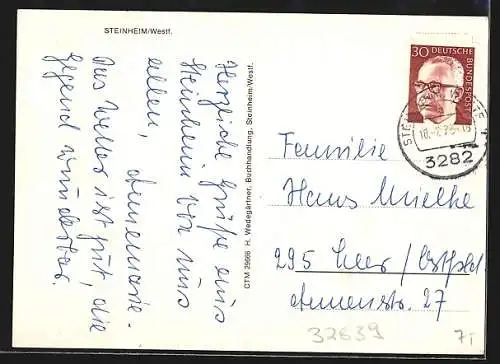 STEINHEIM/Westf.
Herzliche Grüße aus
Steinheim von uns
allen,
Annemarie.
Das Wetter ist gut, die
Gegend wunderbar.
CTM 29666 H. Wedegärtner, Buchhandlung, Steinheim/Westf.
30 DEUTSCHE
BUNDESPOST
3282
Familie
Hans Mielke
295 Leer/Ostfrsld.
Annenstr. 27
32639